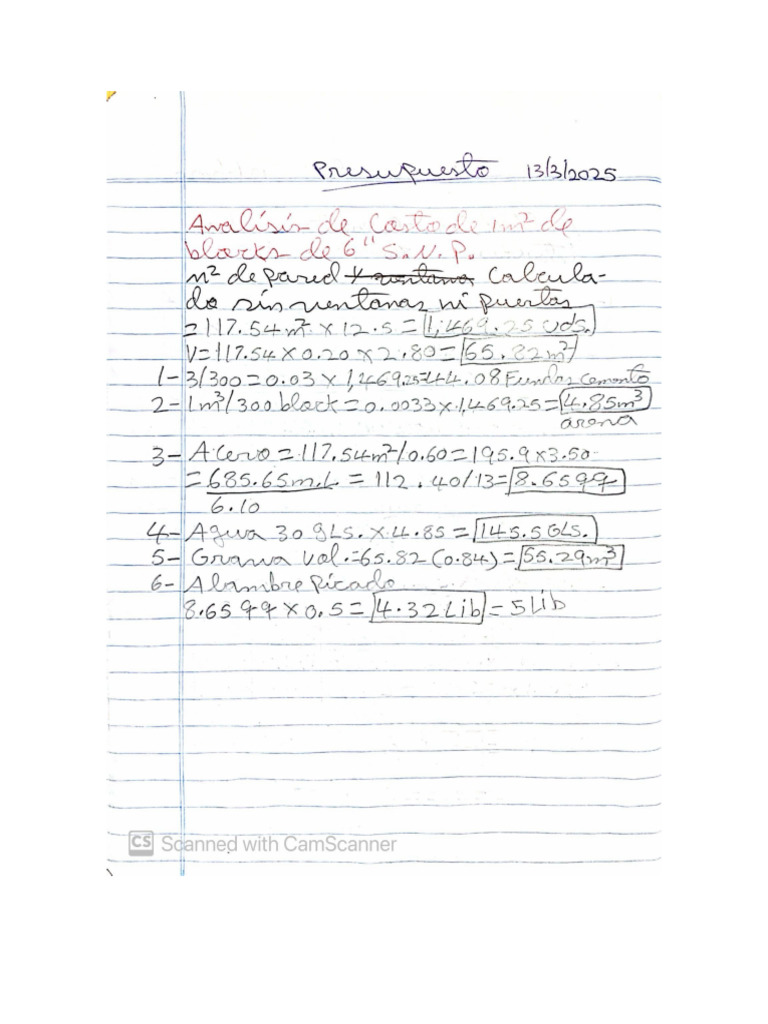 Presupuesto 13/3/2025
Analísis de Costo de 1m² de
blocks de 6" S.N.P.
m² de pared y ventana Calcula-
do sin ventanas ni puertas
=117.54m² x 12.5 = 1,469.25 uds.
V=117.54 x 0.20 x 2.80 = 65.82m³
1- 3/300=0.03 x 1,469.25=44.08 Fundas cemento
2- 1m³/300 block = 0.0033 x 1,469.25 = 4.85m³
arena
3- Acero = 117.54m²/0.60 = 195.9 x 3.50
= 685.65m.L = 112.40/13 = 8.65qq
6.10
4- Agua 30 gLs. x 4.85 = 145.5 GLS.
5- Grava Vol.=65.82(0.84)=55.29m³
6- Alambre Picado
8.65qq x 0.5 = 4.32Lib = 5Lib
CS Scanned with CamScanner